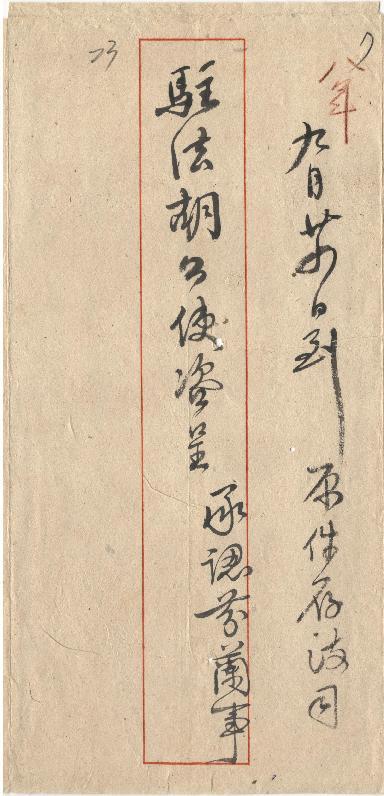 八年
九月廿日到 原件存政司
駐法胡公使咨呈 承認芬蘭事